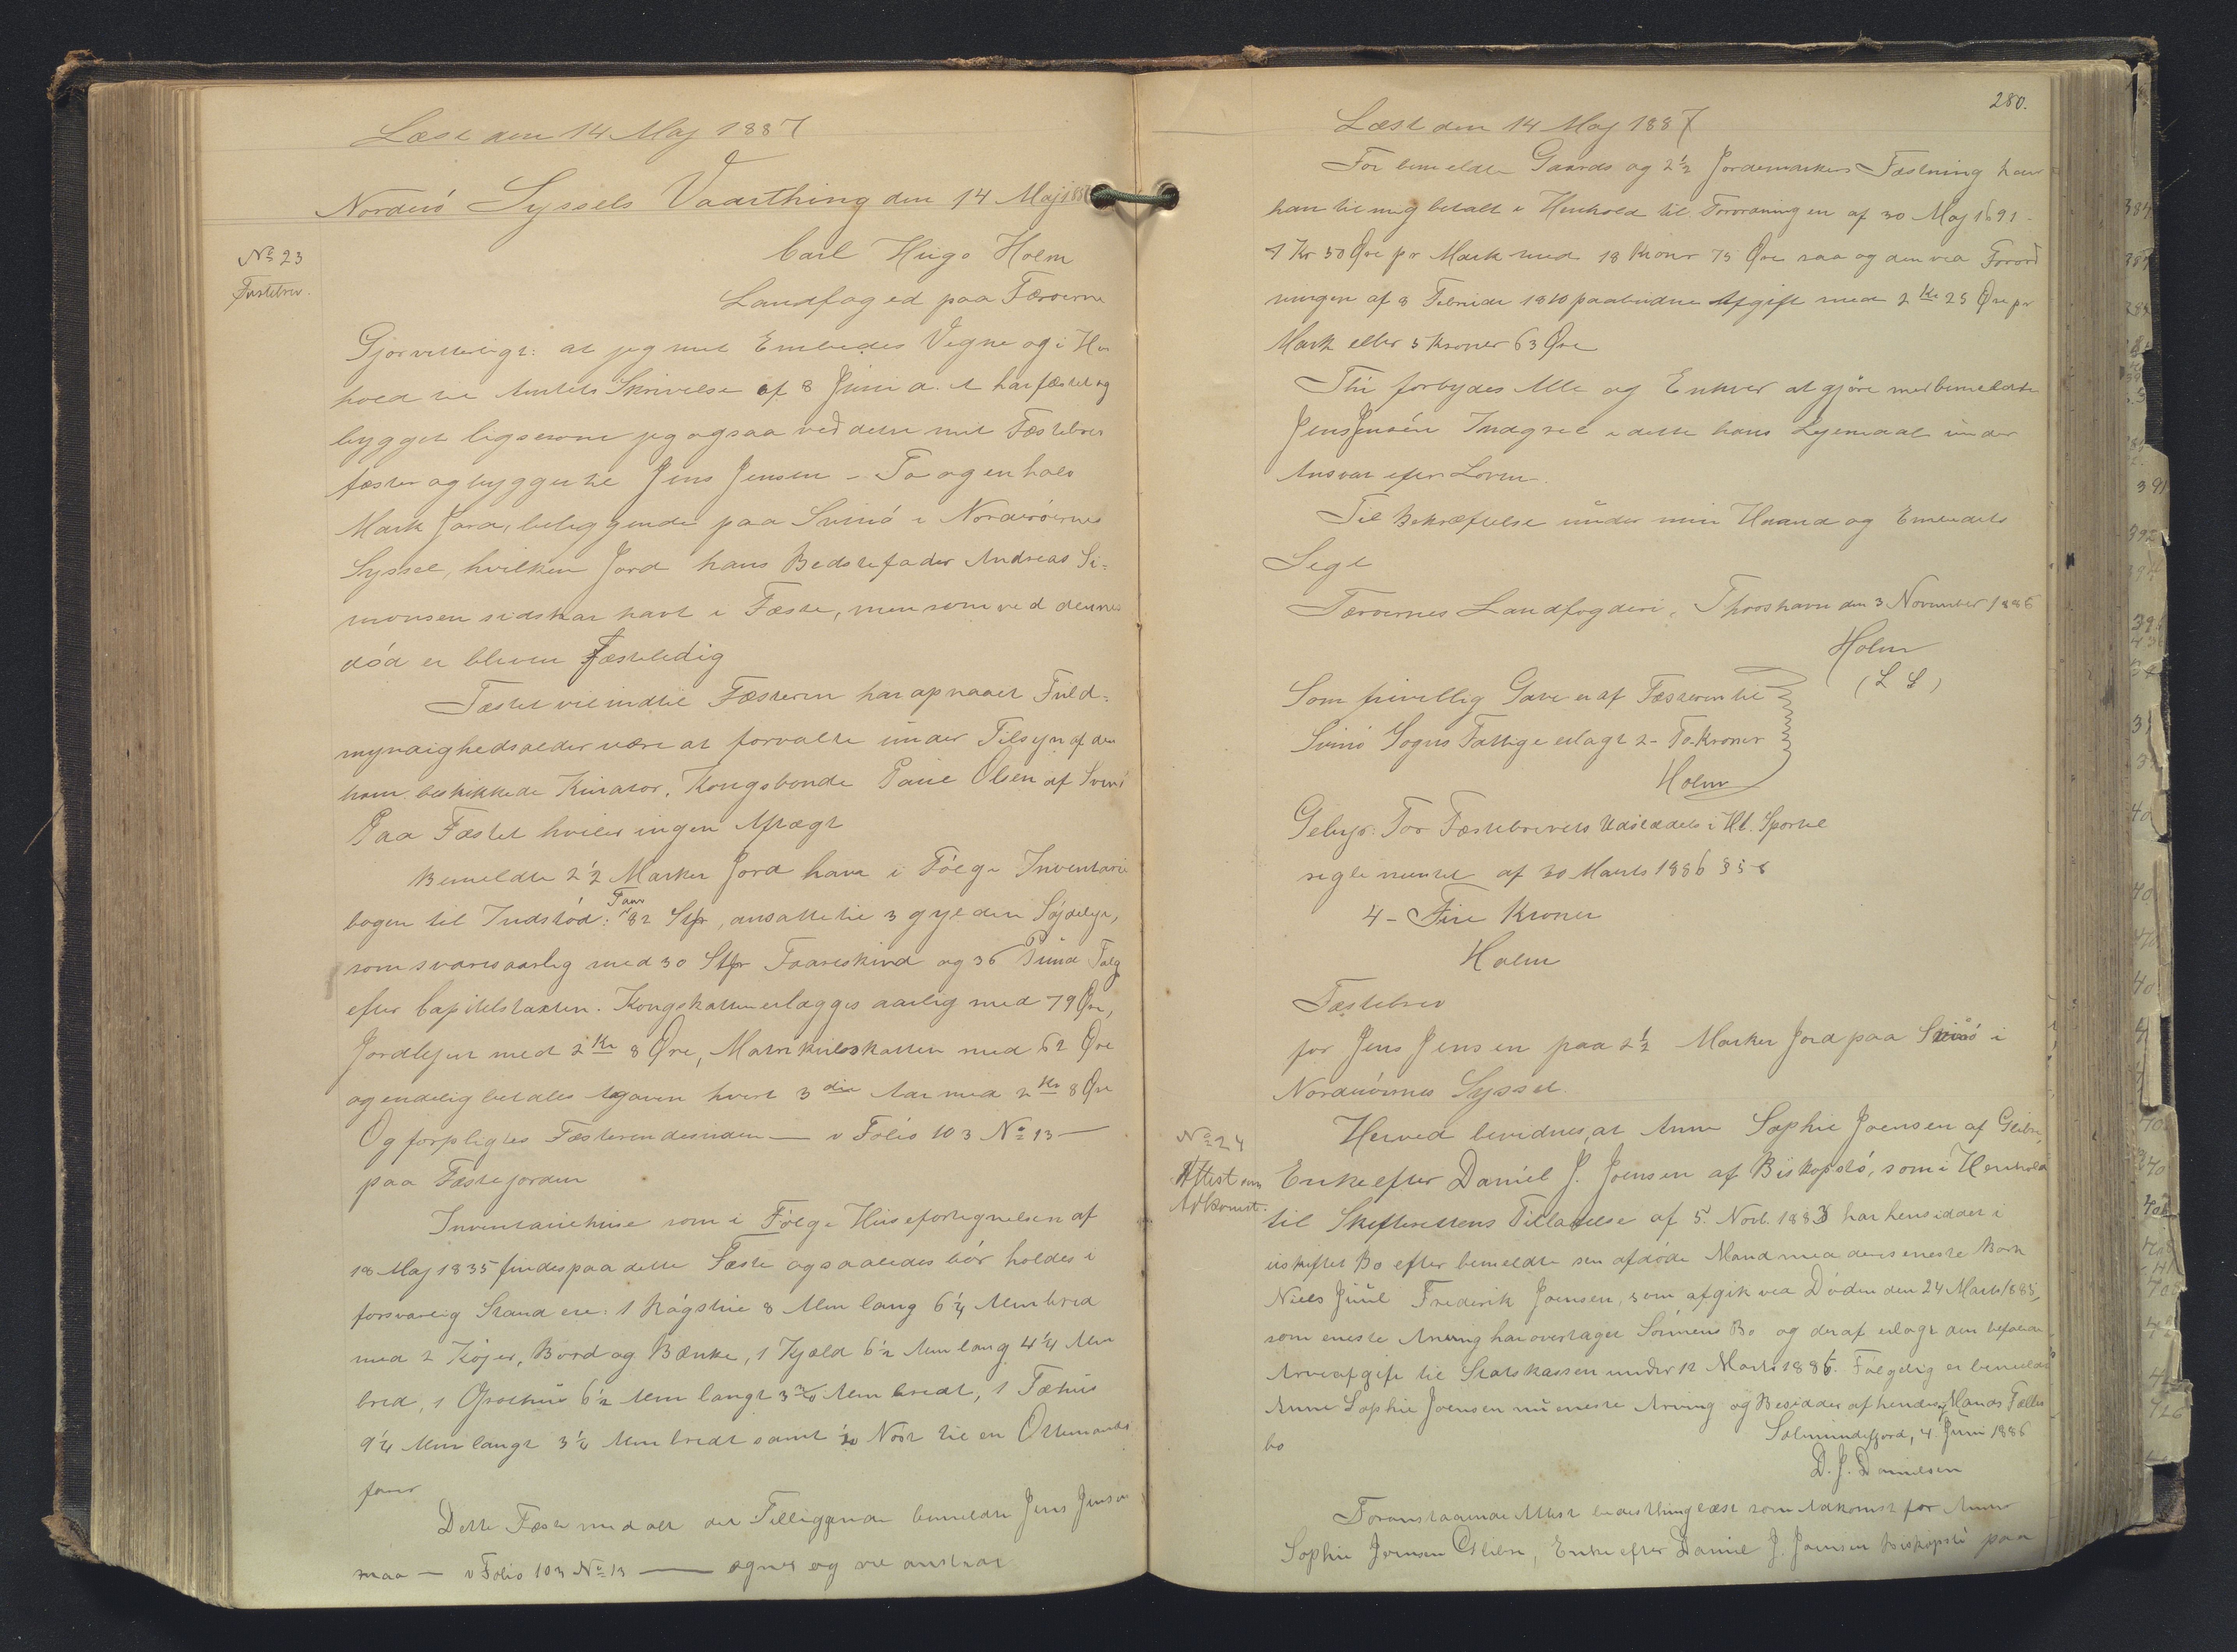 Læst den 14 Maj 1887
Norderö Syssels Vaarthing den 14 Maj 1887
No 23
Fæstebrev.
Carl Hugo Holm
Landfoged paa Færøerne
Gjör vitterligt: at jeg med Embedes Vegne og i Hen
hold til Amtets Skrivelse af 8 Juni a. c. har fæstet og
bygget ligesom jeg ogsaa ved dette mit Fæstebrev
fæster og bygger til Jens Jensen – To og en halv
Mark Jord, beliggende paa Svinö i Norderöernes
Syssel, hvilken Jord hans Bedstefader Andreas Si=
monsen sidst har havt i Fæste, men som ved dennes
död er bleven Fæsteledig
Fæstet vil indtil Fæsteren har opnaaet Fuld=
myndighedsalder være at forvalte under Tilsyn af den
ham beskikkede Kurator, Kongsbonde Poul Olsen af Svinö
Paa Fæstet hviler ingen Aftægt
Bemeldte 2½ Marker Jord have i Fölge Inventarie
bogen til Indstöd: Faar 82 Stkr, ansatte til 3 gylden Söjdelyn,
som svares aarlig med 30 Stkr Faareskind og 36 Pund Talg
efter Capitelstaxten. Kongskatten erlægges aarlig med 79 Øre,
Jordlejen med 2 Kr 8 Øre, Matrikulsskatten med 62 Øre
og endelig betales Tagaven hvert 3 die Aar med 2 Kr 8 Øre
Og forpligtes Fæsteren desuden — v Folio 103 No 13 —
paa Fæstejorden
Inventariehuse som i Fölge Husefortegnelsen af
18 Maj 1835 findes paa dette Fæste og saaledes bör holdes i
forsvarlig Stand ere: 1 Rögstue 8 Alen lang 6¼ Alen bred
med 2 Köjer, Bord og Bænke, 1 Kjæld 6½ Alen lang 4¼ Alen
bred, 1 Grothus 6½ Alen langt 3¾ Alen bredt, 1 Fæhus
9¼ Alen langt 3¼ Alen bredt samt ½ Nöst til en Ottemands
far
Dette Fæste med alt det Tilliggende bemeldte Jens Jensen
maa — v Folio 103 No 13 — egner og vel anstaar
280.
Læst den 14 Maj 1887
For bemeldte Gaards og 2½ Jordemarkers Fæstning har
han til mig betalt i Henhold til Forordningen af 30 Maj 1691
7 Kr 50 Øre pr Mark med 18 Kroner 75 Øre saa og den ved Forord
ningen af 8 Februar 1810 paabudne Afgift med 2 Kr 25 Øre pr
Mark eller 5 Kroner 63 Øre
Thi forbydes Alle og Enhver at gjöre meerbemeldte
Jens Jensen Indgreb i dette hans Lejemaal under
Ansvar efter Loven.
Til Bekræftelse under min Haand og Embedets
Segl
Færøernes Landfogderi, Thorshavn den 3 November 1886
Holm
(L S)
Som frivillig Gave er af Fæsteren til
Svinö Sogns Fattige erlagt 2 – To Kroner
Holm
Gebyr: For Fæstebrevets Udstedelse i Hl. Sportel
reglementet af 30 Marts 1836 § 58
4 – Fire Kroner
Holm
Fæstebrev
for Jens Jensen paa 2½ Marker Jord paa Svinö i
Norderöernes Syssel.
No 24
Attest om
Adkomst.
Herved bevidnes, at Anne Sophie Joensen af Glibre,
Enke efter Daniel J. Joensen af Biskopstö, som i Henhold
til Skifterettens Tilladelse af 5. Novb. 1883 har hensiddet i
uskiftet Bo efter bemeldte sin afdöde Mand med deres eneste Barn
Niels Juul Frederik Joensen, som afgik ved Döden den 24 Marts 1885,
som eneste Arving har overtaget Sönnens Bo og deraf erlagt den befalede
Arveafgift til Statskassen under 12 Marts 1886. Fölgelig er bemeldte
Anne Sophie Joensen nu eneste Arving og Besidder af hendes Mands Fælles
bo
Solmundefjord, 4 Juni 1886
D. J. Danielsen
Foranstaaende Attest bedes thinglæst som Adkomst for Anne
Sophie Joensen Glibre, Enke efter Daniel J. Joensen Biskopstö paa